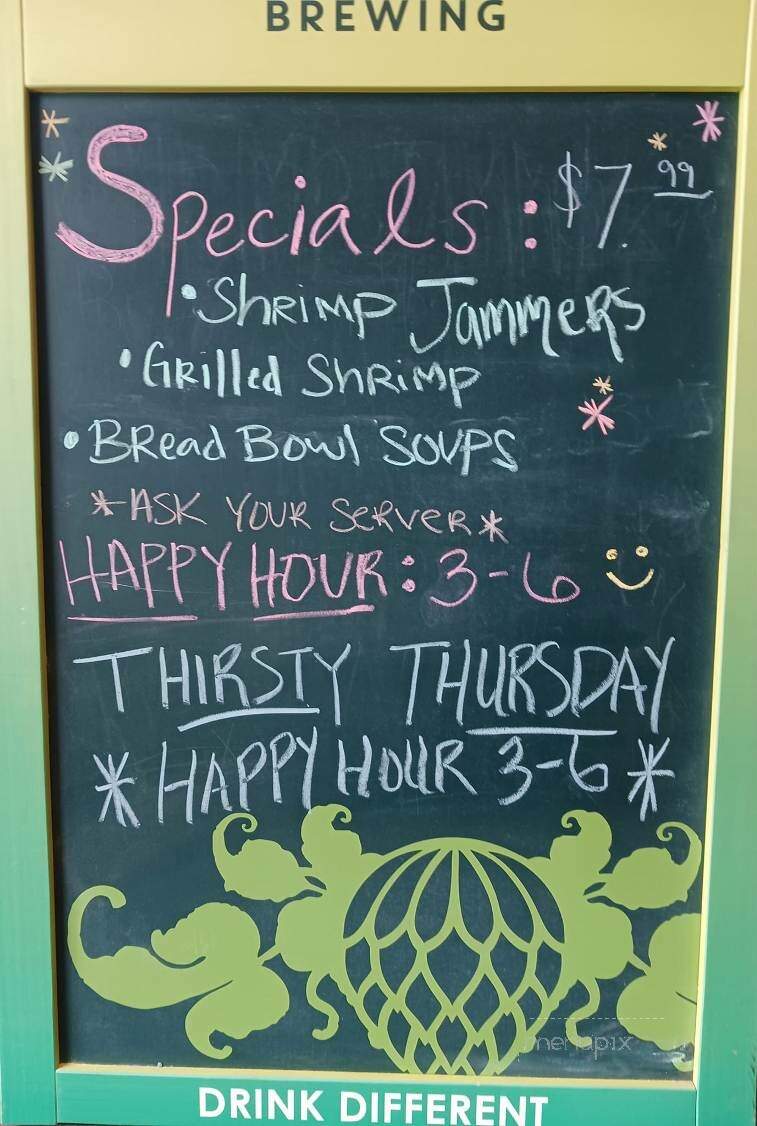 BREWING
Specials: $7.99
• Shrimp Jammers
• Grilled Shrimp
• Bread Bowl Soups
*ASK YOUR SERVER*
HAPPY HOUR: 3-6
THIRSTY THURSDAY
* HAPPY HOUR 3-6 *
menupix
DRINK DIFFERENT